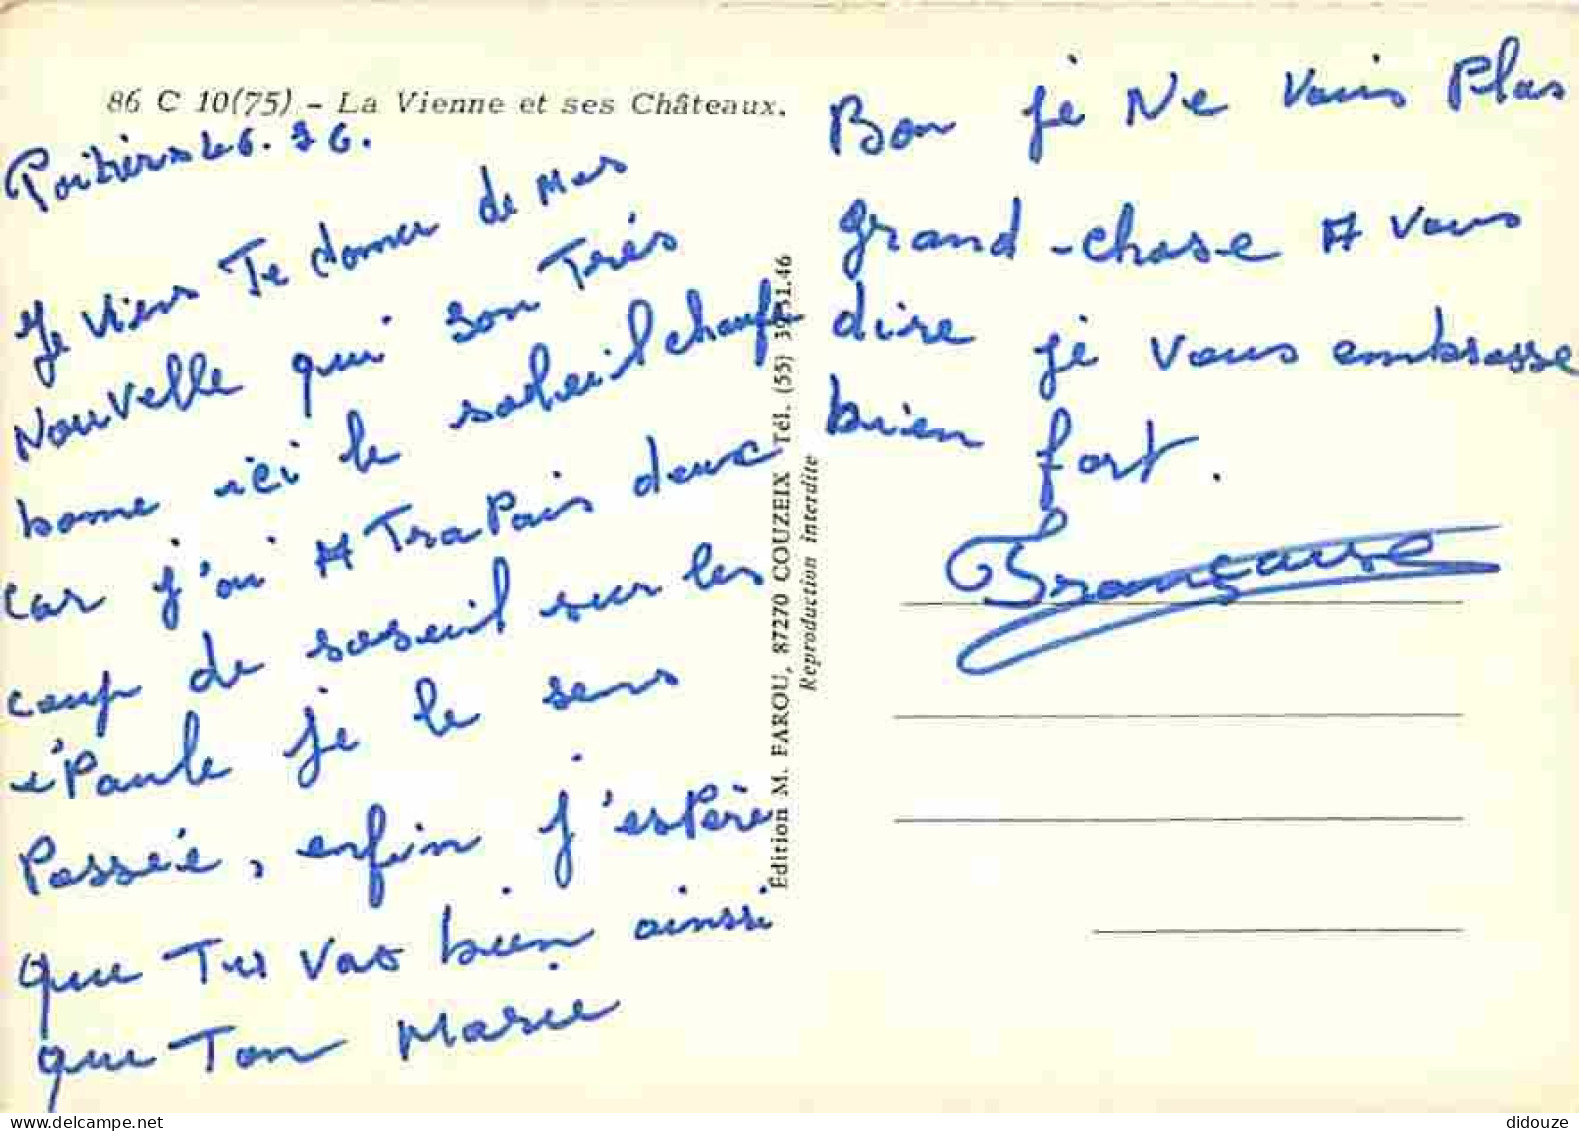 86 C 10(75) - La Vienne et ses Châteaux.
Poitiers le 6. 76.
Je viens Te donner de Mes
Nouvelle qui son Trés
bonne ici le soleil chauffe
car j'ai A Trapais deux
coup de soseuil sur les
éPaule je le sens
Passée, enfin j'espère
que Tu vas bien ainsi
que Ton Marie
Édition M. FAROU, 87270 COUZEIX Tél. (55) 39.51.46
Reproduction interdite
Bon je Ne vois Plas
grand-chose A vous
dire je vous embrasse
bien fort.
Françoise
didouze